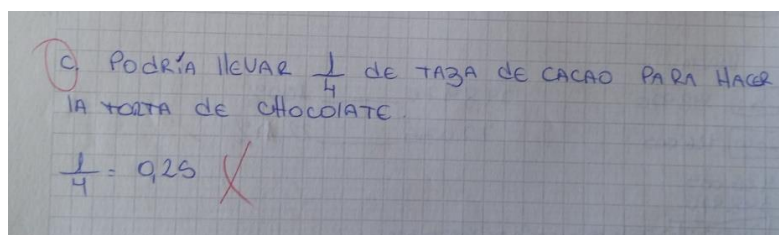 C. PODRÍA llEVAR 1/4 dE TAZA dE CACAO PARA HACER
lA TORTA dE CHOCOlATE.
1/4 = 0,25